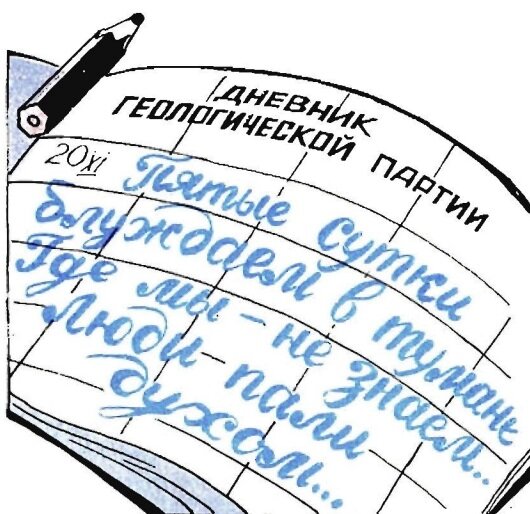 ДНЕВНИК
ГЕОЛОГИЧЕСКОЙ ПАРТИИ
20 XI Пятые сутки
блуждаем в тумане
Где мы – не знаем..
Люди пали
духом...